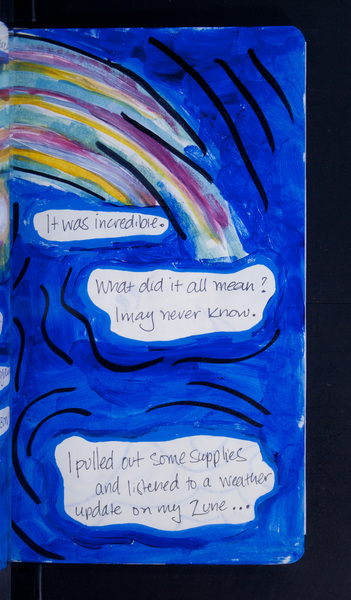 It was incredible.
What did it all mean?
I may never know.
I pulled out some supplies
and listened to a weather
update on my Zune...